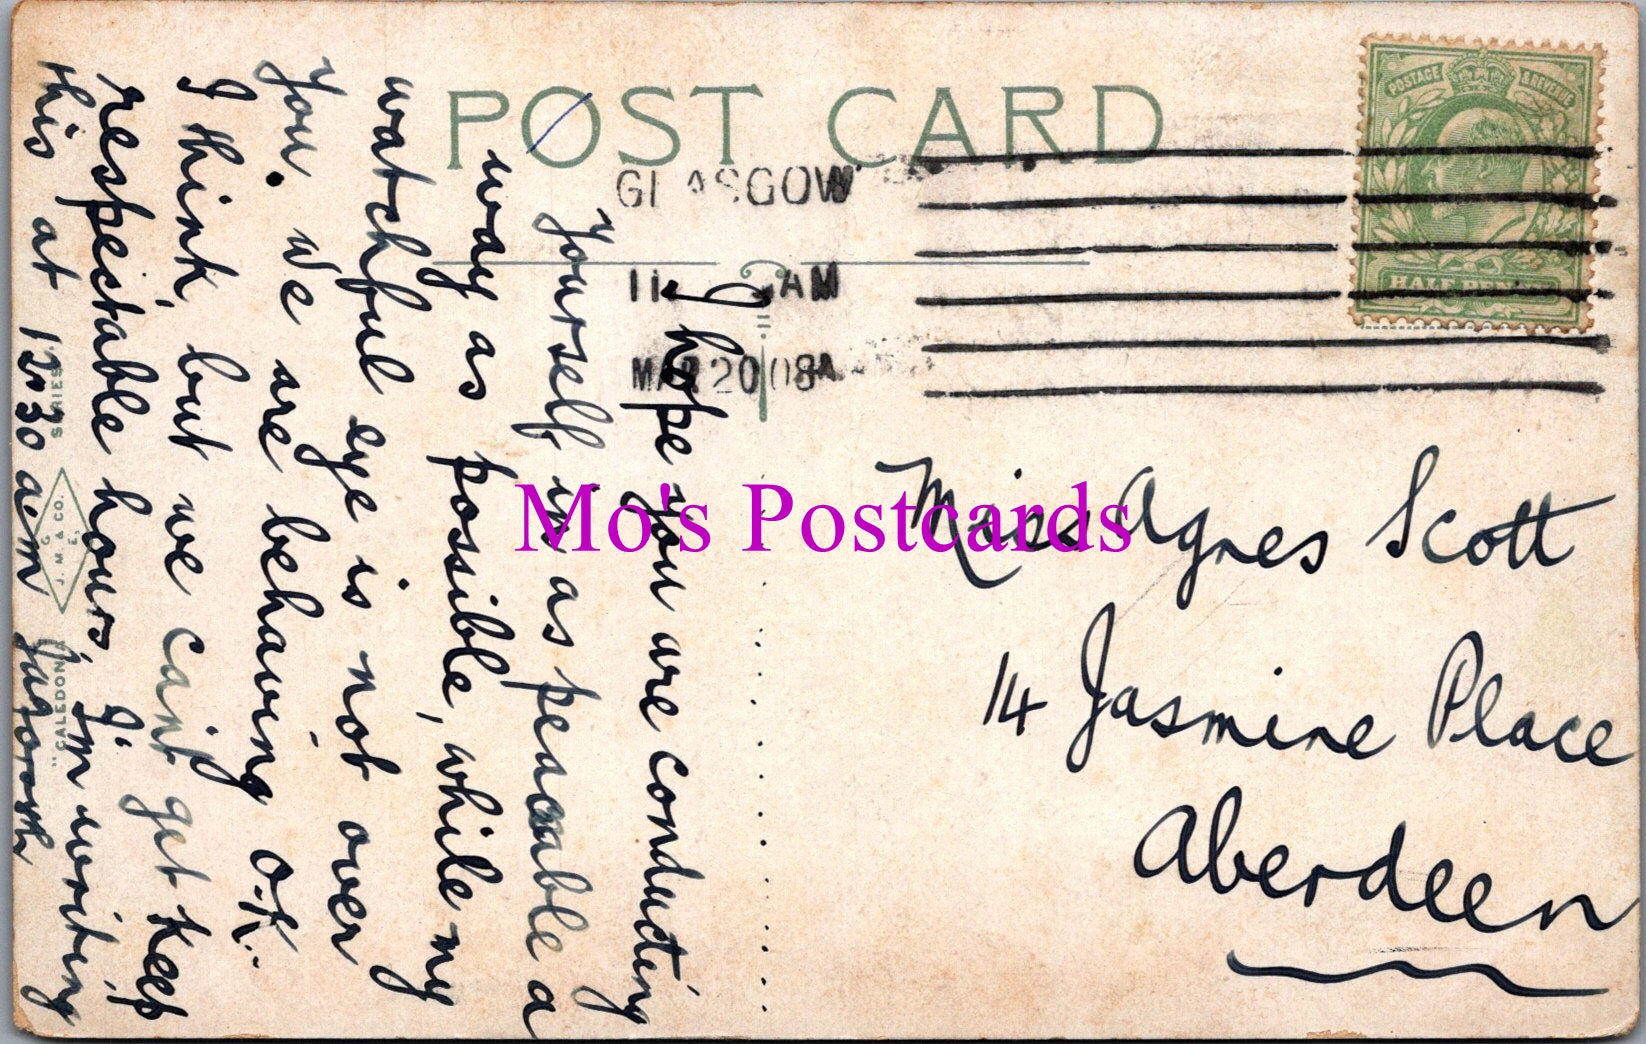 POST CARD
POSTAGE & REVENUE
HALF PENNY
GLASGOW
AM
MAR 20 08
I hope you are conducting
yourself in as peaceable a
way as possible, while my
watchful eye is not over
you. We are behaving O.K.
I think, but we can't get keep
respectable hours, I'm writing
this at 12.30 a.m
Miss Agnes Scott
14 Jasmine Place
Aberdeen
"CALEDONIA
J. M. & CO.
G. E.
SERIES
Mo's Postcards